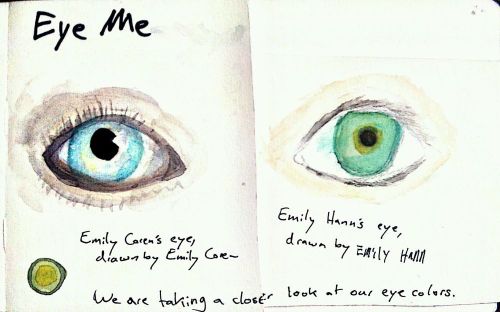 Eye Me
Emily Coren's eye,
drawn by Emily Coren
Emily Hann's eye,
drawn by EMILY HANN
We are taking a closer look at our eye colors.